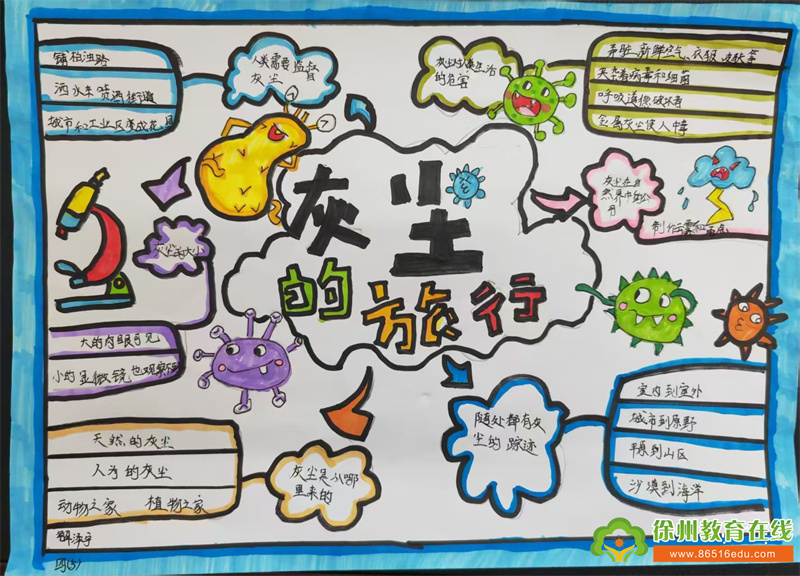 灰尘
的旅行
人类需要监督
灰尘
铺柏油路
洒水车喷洒街道
城市和工业区变成花园
灰尘的大小
大的肉眼可见
小的显微镜也观察不到
灰尘是从哪
里来的
天然的灰尘
人为的灰尘
动物之家 植物之家
随处都有灰
尘的踪迹
室内到室外
城市到原野
平原到山区
沙漠到海洋
灰尘在自
然界中的作
用
制作云雾和
的危害
弄脏新鲜空气、衣服、皮肤等
夹带着病毒和细菌
呼吸道像破坏者
金属灰尘使人中毒
四(5)
徐州教育在线
www.86516edu.com